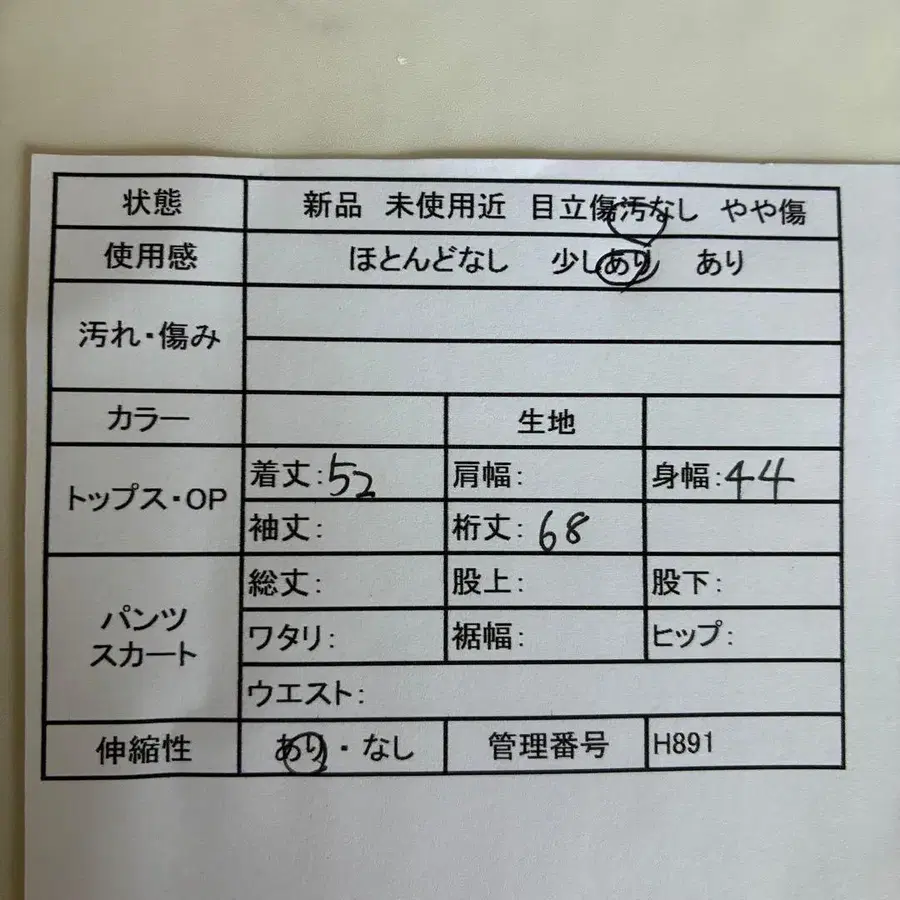 状態 新品 未使用近 目立傷汚なし やや傷
使用感 ほとんどなし 少しあり あり
汚れ・傷み
カラー 生地
トップス・OP 着丈:52 肩幅: 身幅:44
袖丈: 裄丈:68
パンツ
スカート
総丈: 股上: 股下:
ワタリ: 裾幅: ヒップ:
ウエスト:
伸縮性 あり・なし 管理番号 H891